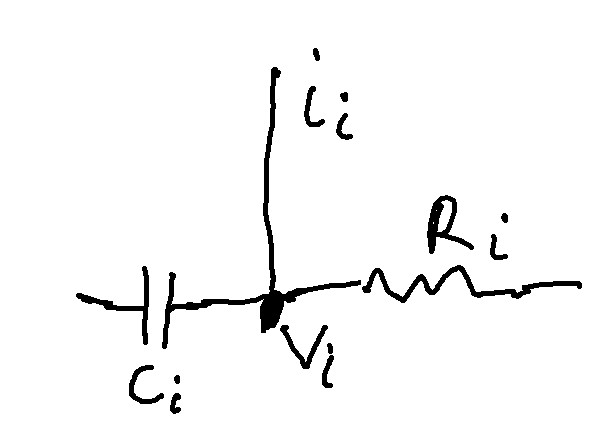 i i
R i
V i
C i